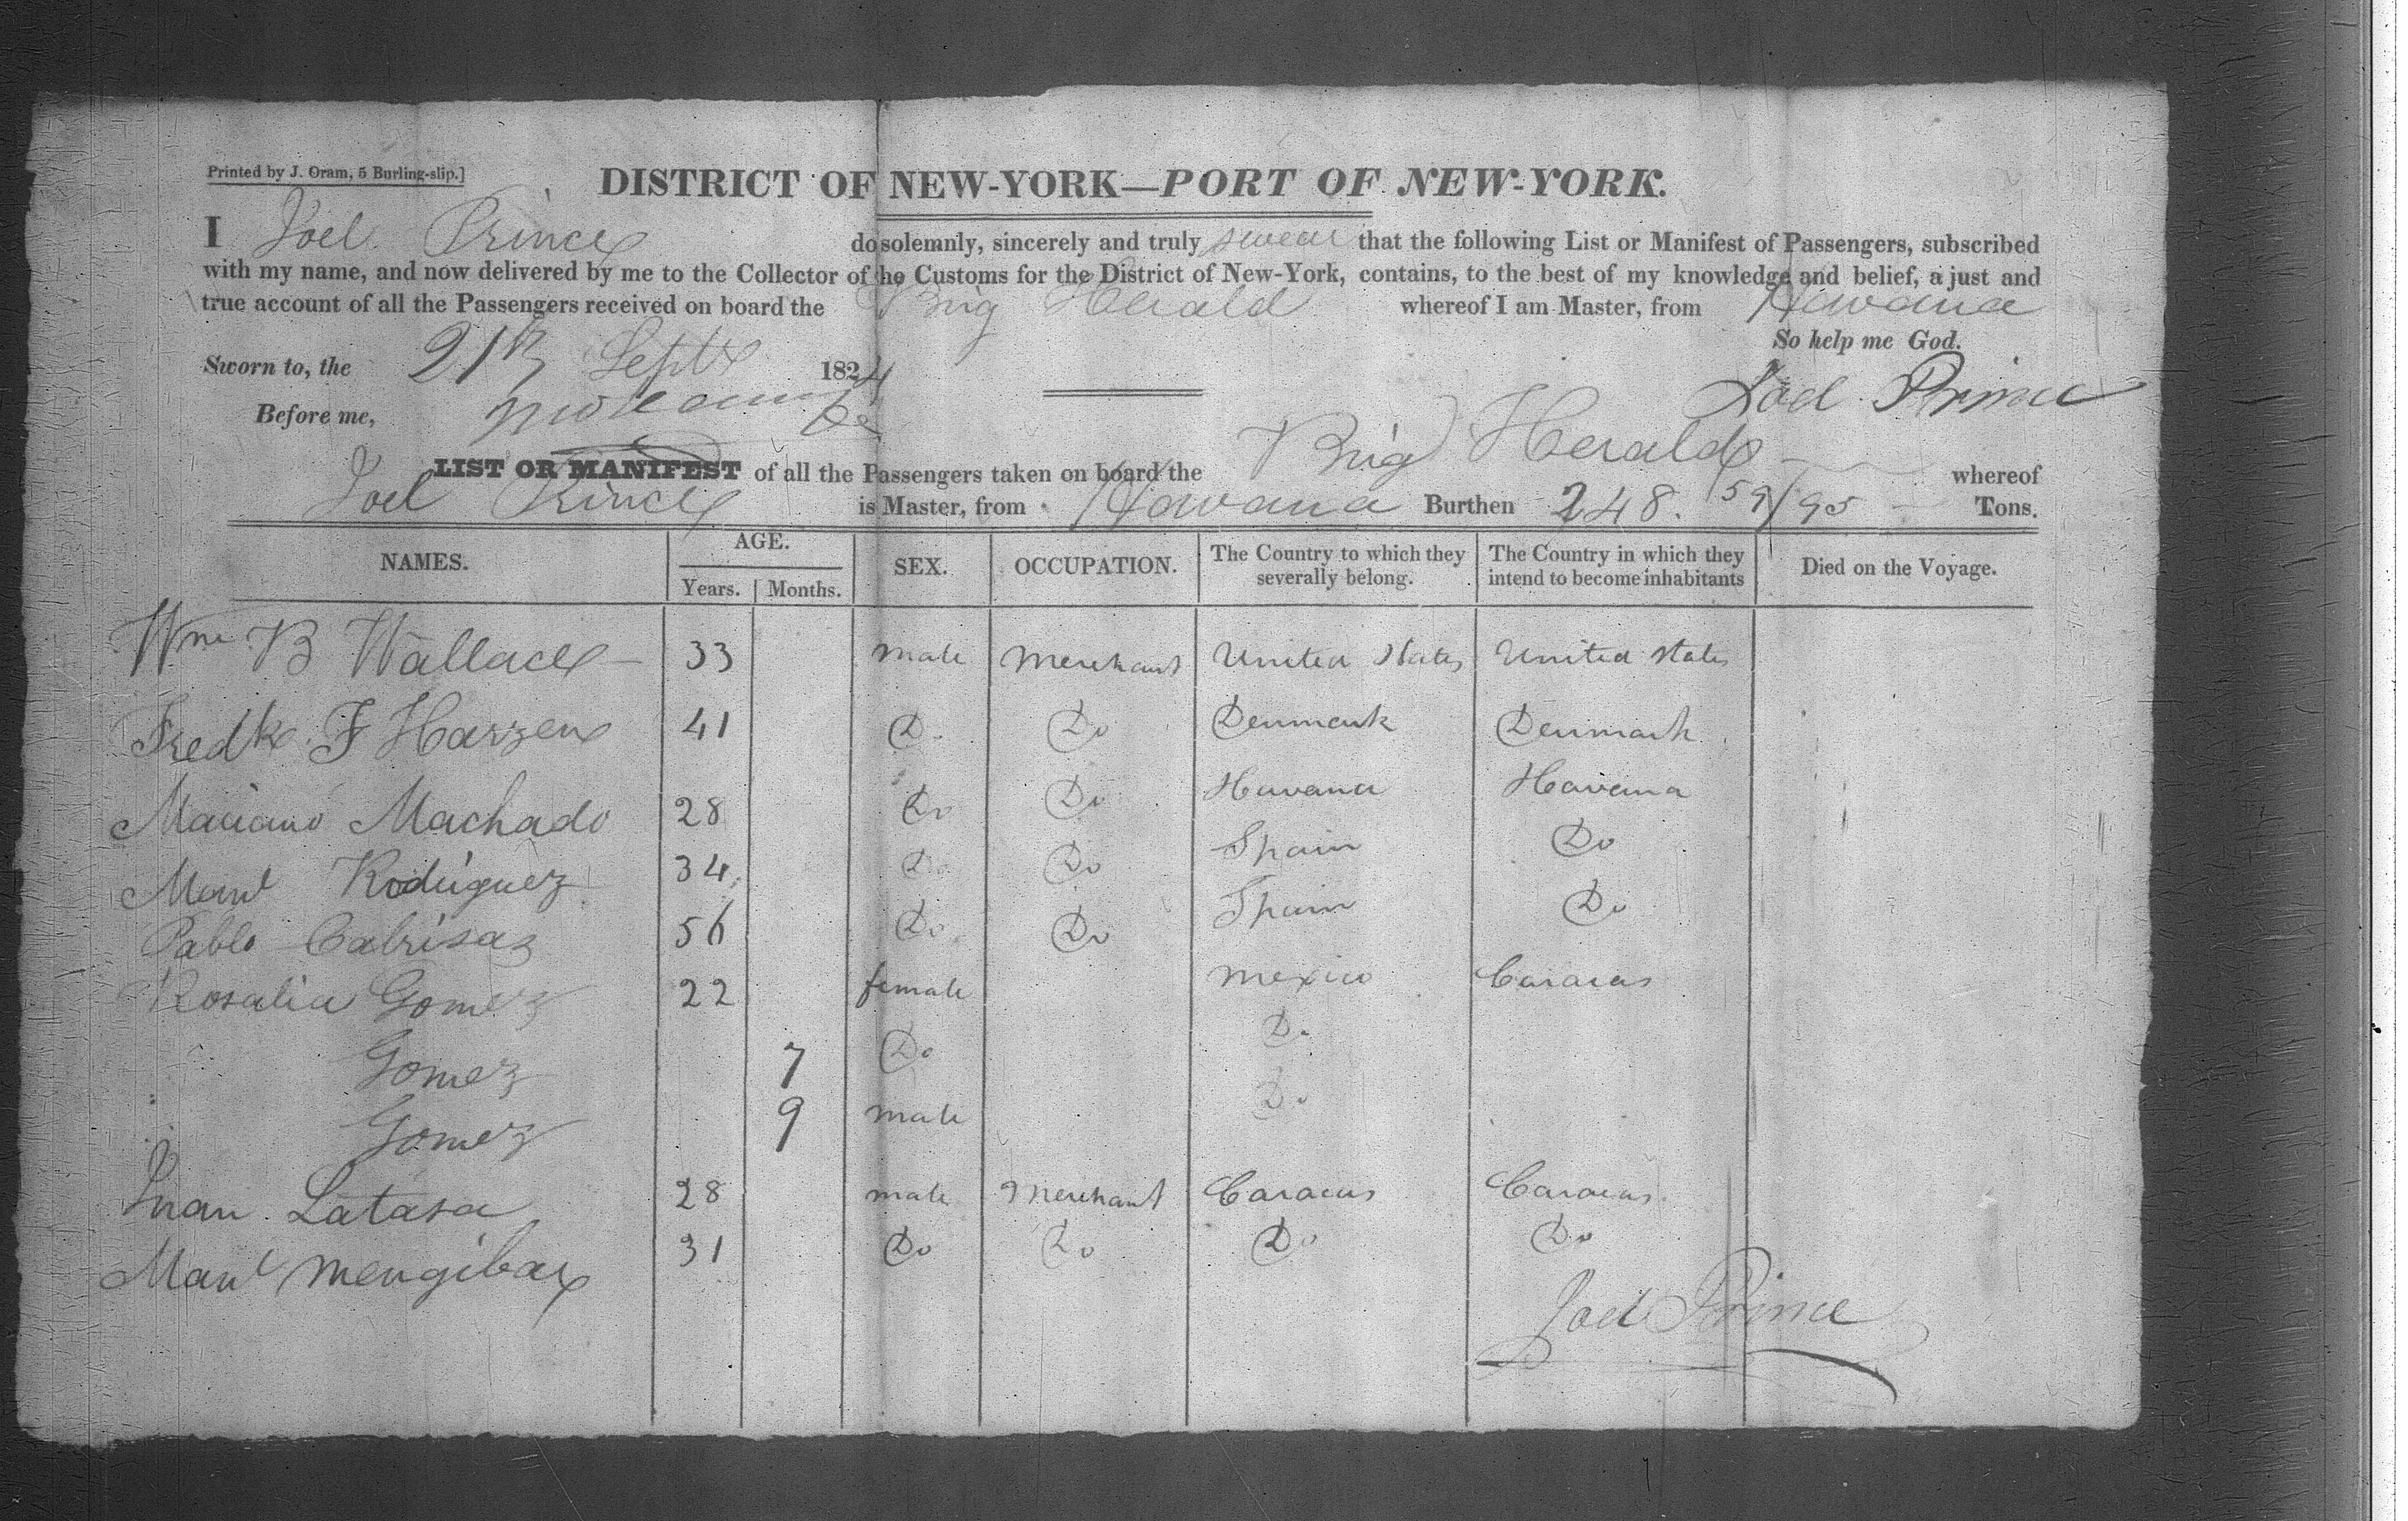 Printed by J. Oram, 5 Burling-slip.]
DISTRICT OF NEW-YORK—PORT OF NEW-YORK.
I Joel Prince do solemnly, sincerely and truly swear that the following List or Manifest of Passengers, subscribed
with my name, and now delivered by me to the Collector of he Customs for the District of New-York, contains, to the best of my knowledge and belief, a just and
true account of all the Passengers received on board the Brig Herald whereof I am Master, from Havana
So help me God.
Sworn to, the 21st Septr 1824
Joel Prince
Before me,
LIST OR MANIFEST of all the Passengers taken on board the Brig Herald whereof
Joel Prince is Master, from Havana Burthen 248. 59/95 Tons.
NAMES. AGE. SEX. OCCUPATION. The Country to which they severally belong. The Country in which they intend to become inhabitants Died on the Voyage.
Years. Months.
Wm B Wallace 33 male merchant United States United States
Fredk F Harzen 41 Do Do Denmark Denmark
Mariano Machado 28 Do Do Havana Havana
Manl Rodriguez 34 Do Do Spain Do
Pablo Cabrisas 56 Do Do Spain Do
Rosalia Gomez 22 female Mexico Caracas
Gomez 7 Do Do
Gomez 9 male Do
Juan Latasa 28 male Merchant Caracas Caracas
Manl Mengibar 31 Do Do Do Do
Joel Prince